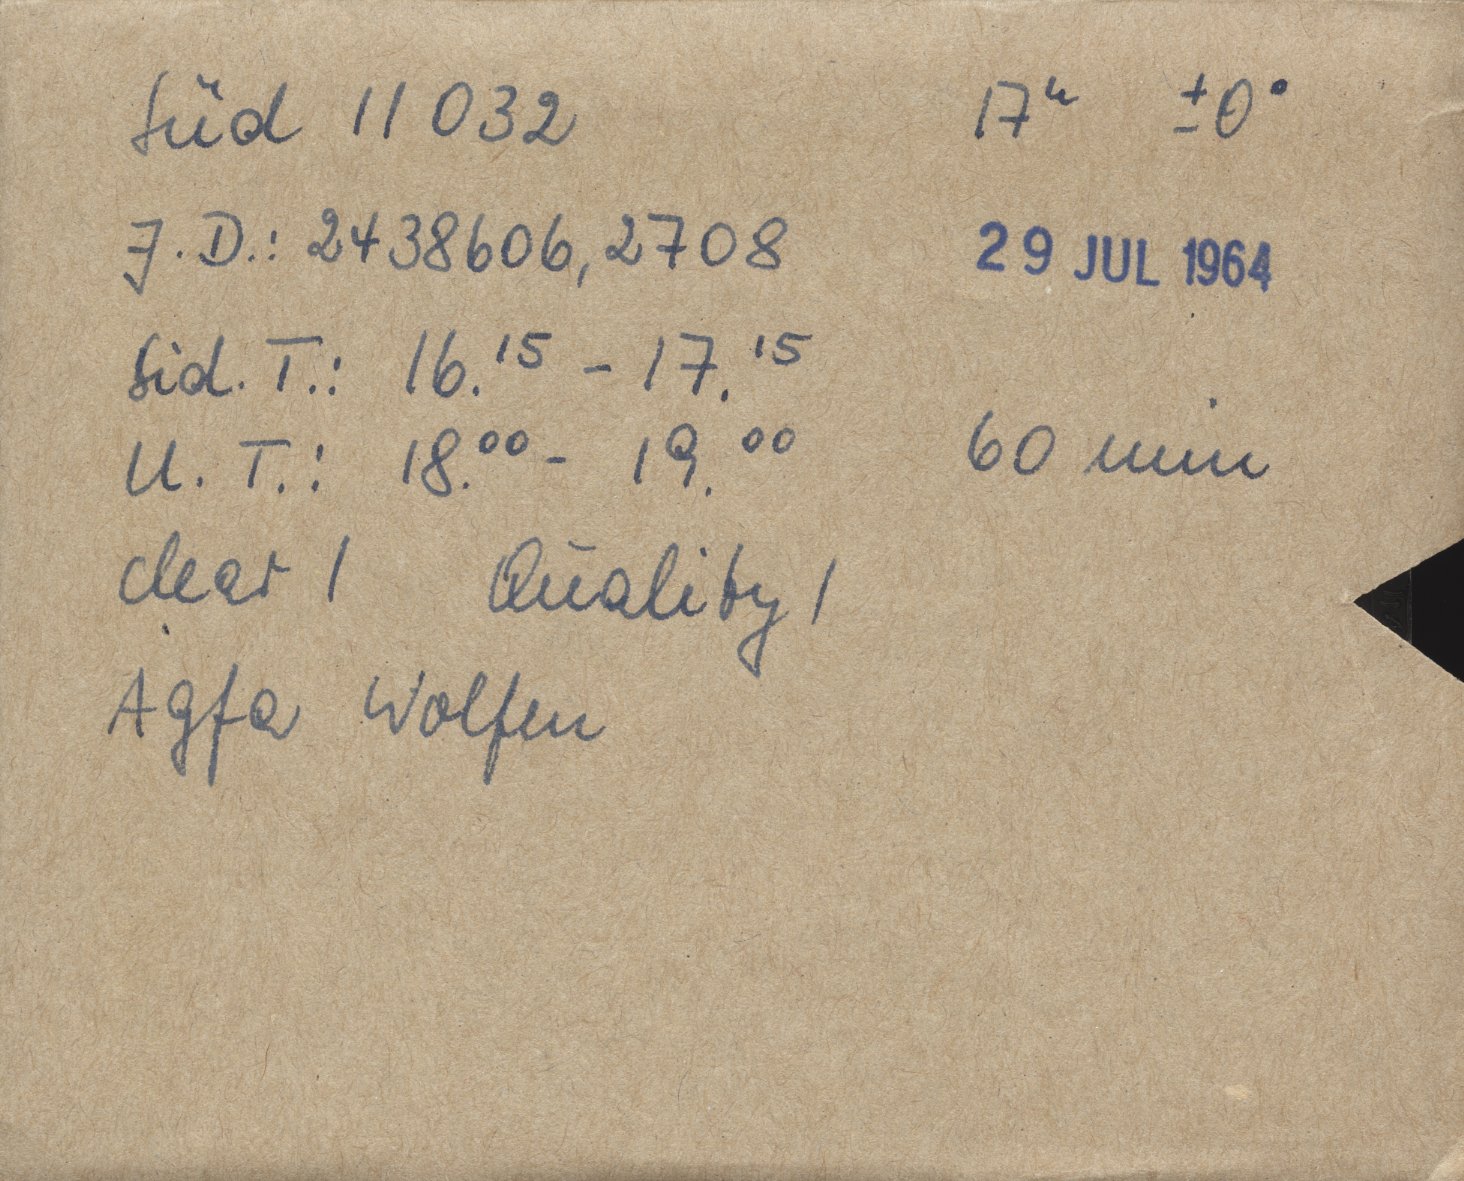 Süd 11032 17ʰ ±0°
J.D.: 2438606,2708 29 JUL 1964
Sid. T.: 16.¹⁵ - 17.¹⁵
U. T.: 18.⁰⁰ - 19.⁰⁰ 60 min
clear 1 Quality 1
Agfa Wolfen